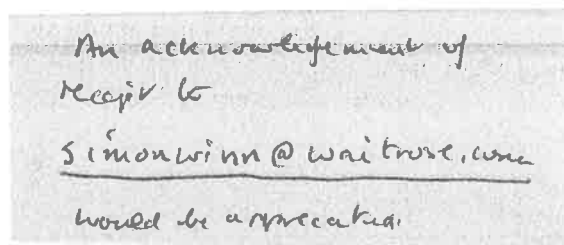 An acknowledgement of
receipt to
simonwinn@waitrose.com
would be appreciated.